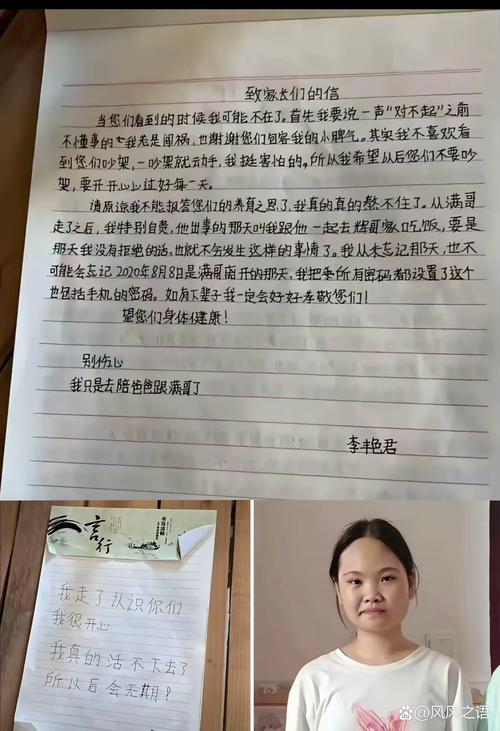 致家长们的信
当您们看到的时候我可能不在了。首先我要说一声“对不起”之前
不懂事的七我老是闯祸,也谢谢您们包容我的小脾气。其实我不喜欢看
到您们吵架,一吵架就动手,我挺害怕的。所以我希望以后您们不要吵
架,要开开心心过好每一天。
请原谅我不能报答您们的养育之恩了,我真的真的熬不住了。从满哥
走了之后,我特别自责,他出事的那天叫我跟他一起去辉哥家吃饭,要是
那天我没有拒绝的话,也就不会发生这样的事情了。我从未忘记那天,也不
可能会忘记2020年8月8日是满哥离开的那天,我把所有密码都设置了这个
也包括手机的密码。如有下辈子我一定会好好孝敬您们!
望您们身体健康!
别伤心
我只是去陪爸爸跟满哥了
李艳君
言行
我走了认识你们
我很开心
我真的活不下去了
所以后会无期!
风风之语